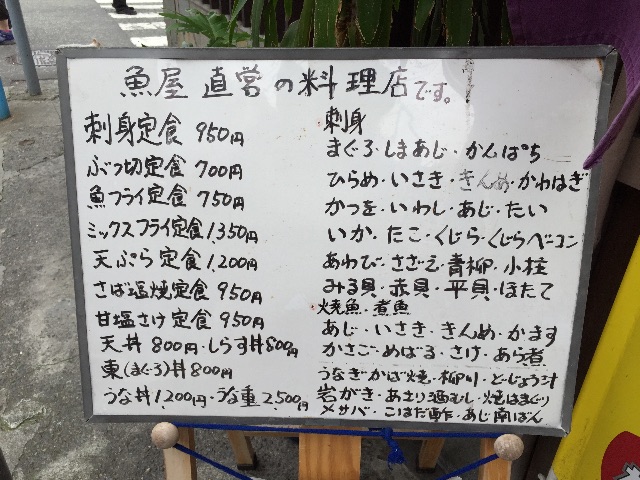 魚屋 直営の料理店です。
刺身定食 950円
ぶつ切定食 700円
魚フライ定食 750円
ミックスフライ定食 1,350円
天ぷら定食 1,200円
さば塩焼定食 950円
甘塩さけ定食 950円
天丼 800円・しらす丼 800円
東(まぐろ)丼 800円
うな丼 1,200円・うな重 2,500円
刺身
まぐろ・しまあじ・かんぱち
ひらめ・いさき・きんめ・かわはぎ
かつを・いわし・あじ・たい
いか・たこ・くじら・くじらベーコン
あわび・さざえ・青柳・小柱
みる貝・赤貝・平貝・ほたて
焼魚・煮魚
あじ・いさき・きんめ・かます
かさご・めばる・さけ・あら煮
うなぎ・かば焼・柳川・どじょう汁
岩がき・あさり酒むし・焼はまぐり
〆サバ・こはだ酢・あじ南ばん